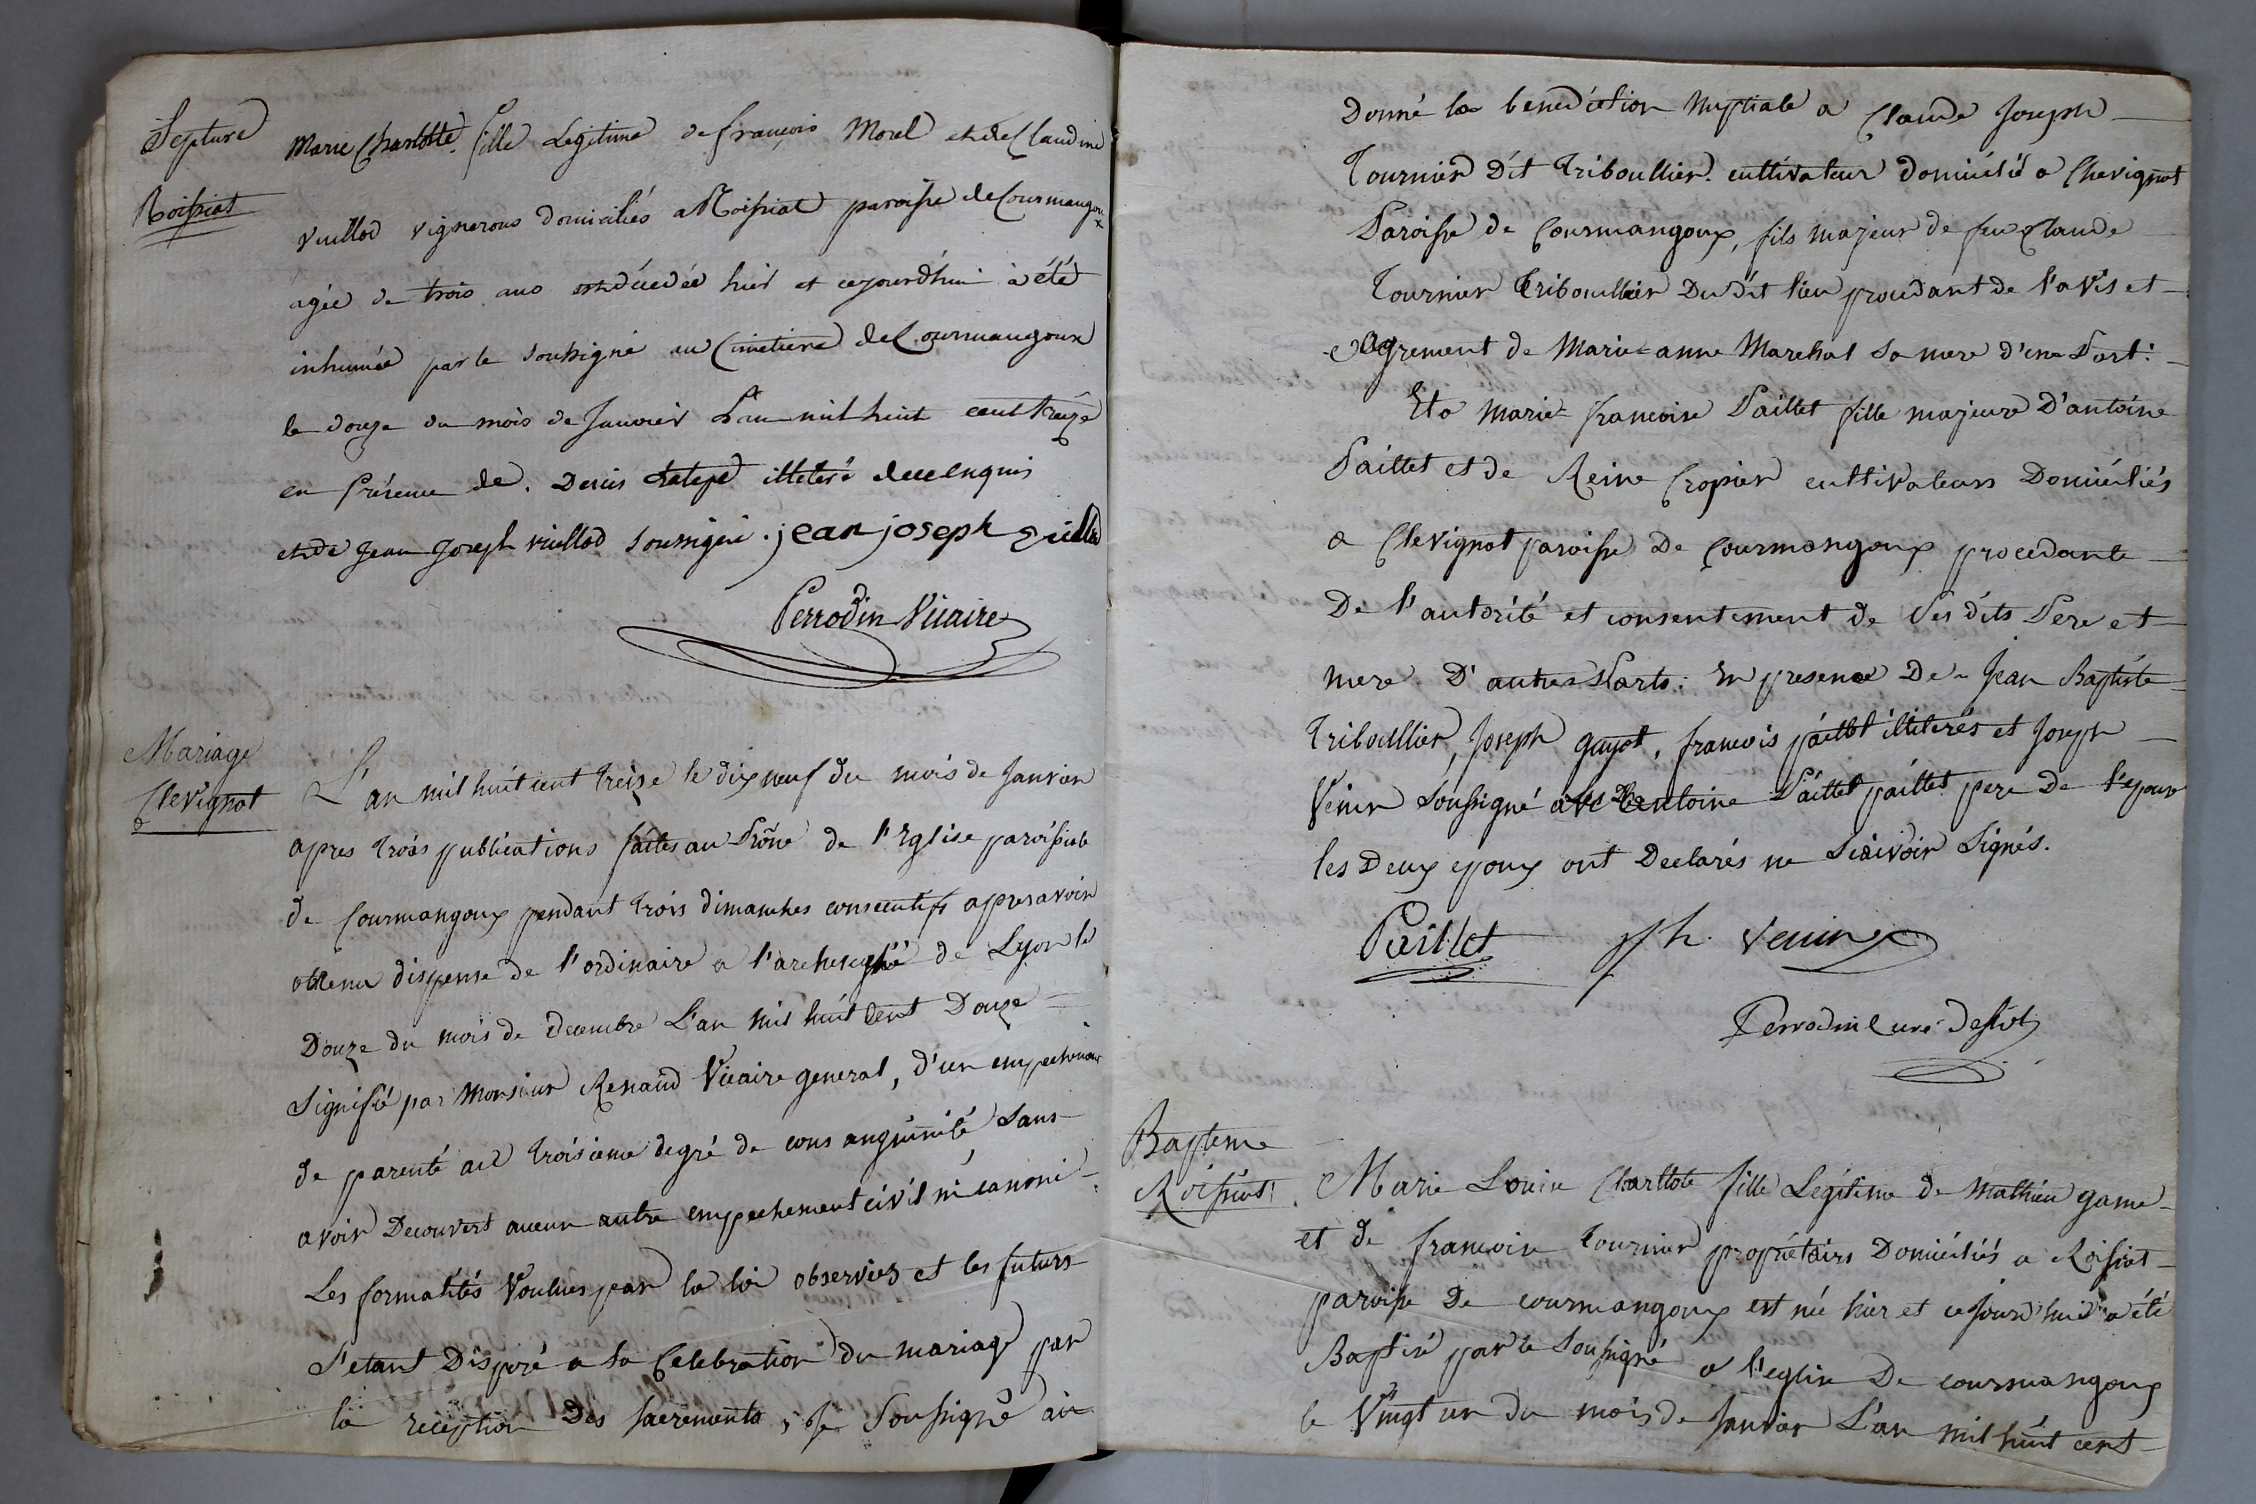 Septure
Roissiat
Marie Charlotte fille Legitime de françois Morel et de Claudine
vuillod vignerons domiciliés a Roissiat paroisse de Courmangoux
agée de trois ans est décedée hier et cejourdhui à été
inhumée par le soussigné au Cimetiere de Courmangoux
le douze du mois de Janvier L'an mil huit cent treize
en Présence de. Denis illeteré de ce enquis
et de Jean Joseph vuillod soussigné. jean joseph vuillod
Perrodin Vicaire
Mariage
Chevignat
L'an mil huit cent treize le dix neuf du mois de Janvier
apres trois publications faites au Prône de l'Eglise paroissiale
de Courmangoux pendant trois dimanches consecutifs apres avoir
obtenu dispense de l'ordinaire a l'archeveché de Lyon le
Douze du mois de decembre L'an mil huit cent Douze
signifié par Monsieur Renaud Vicaire general, d'un empechement
de parenté au troisieme degré de consanguinité, sans
avoir Decouvert aucun autre empechement civil ni canoni-
Les formalités Voulues par la loi observées et les futurs
s'etant Disposé a la Celebration du mariage par
la reception Des sacrements, je soussigné ai
Donné la benediction Nuptiale a Claude Joseph
Tournier Dit Triboullier. cultivateur domicilié a Chevignat
Paroisse de Courmangoux, fils majeur de feu Claude
Tournier Triboullier Du dit lieu procedant de l'avis et
agrement de Marie-anne Marechal sa mere d'une Part:
Et a Marie-francoise Paillet fille majeure D'antoine
Paillet et de Reine Cropier cultivateurs Domiciliés
a Chevignat paroisse De Courmangoux procedante
De l'autorité et consentement de ses dits Pere et
mere D'autre Parts: En presence De Jean Baptiste
Triboullier, Joseph guyot, francois paillet illiterés et Joseph
Venin soussigné avec antoine Paillet paillet pere De l'epouse
les Deux epoux ont Declarés ne scavoir Signés.
Paillet jph. venin
Perrodin Curé Desst
Bapteme
Roissiat
Marie Louise Charlotte fille Legitime de Mathieu game
et de francoise tournier propriétairs Domiciliés a Roissiat
paroisse De courmangoux est née hier et cejourd'hui a été
Baptisé par le soussigné a l'eglise De courmangoux
le Vingt un du mois de Janvier L'an mil huit cent